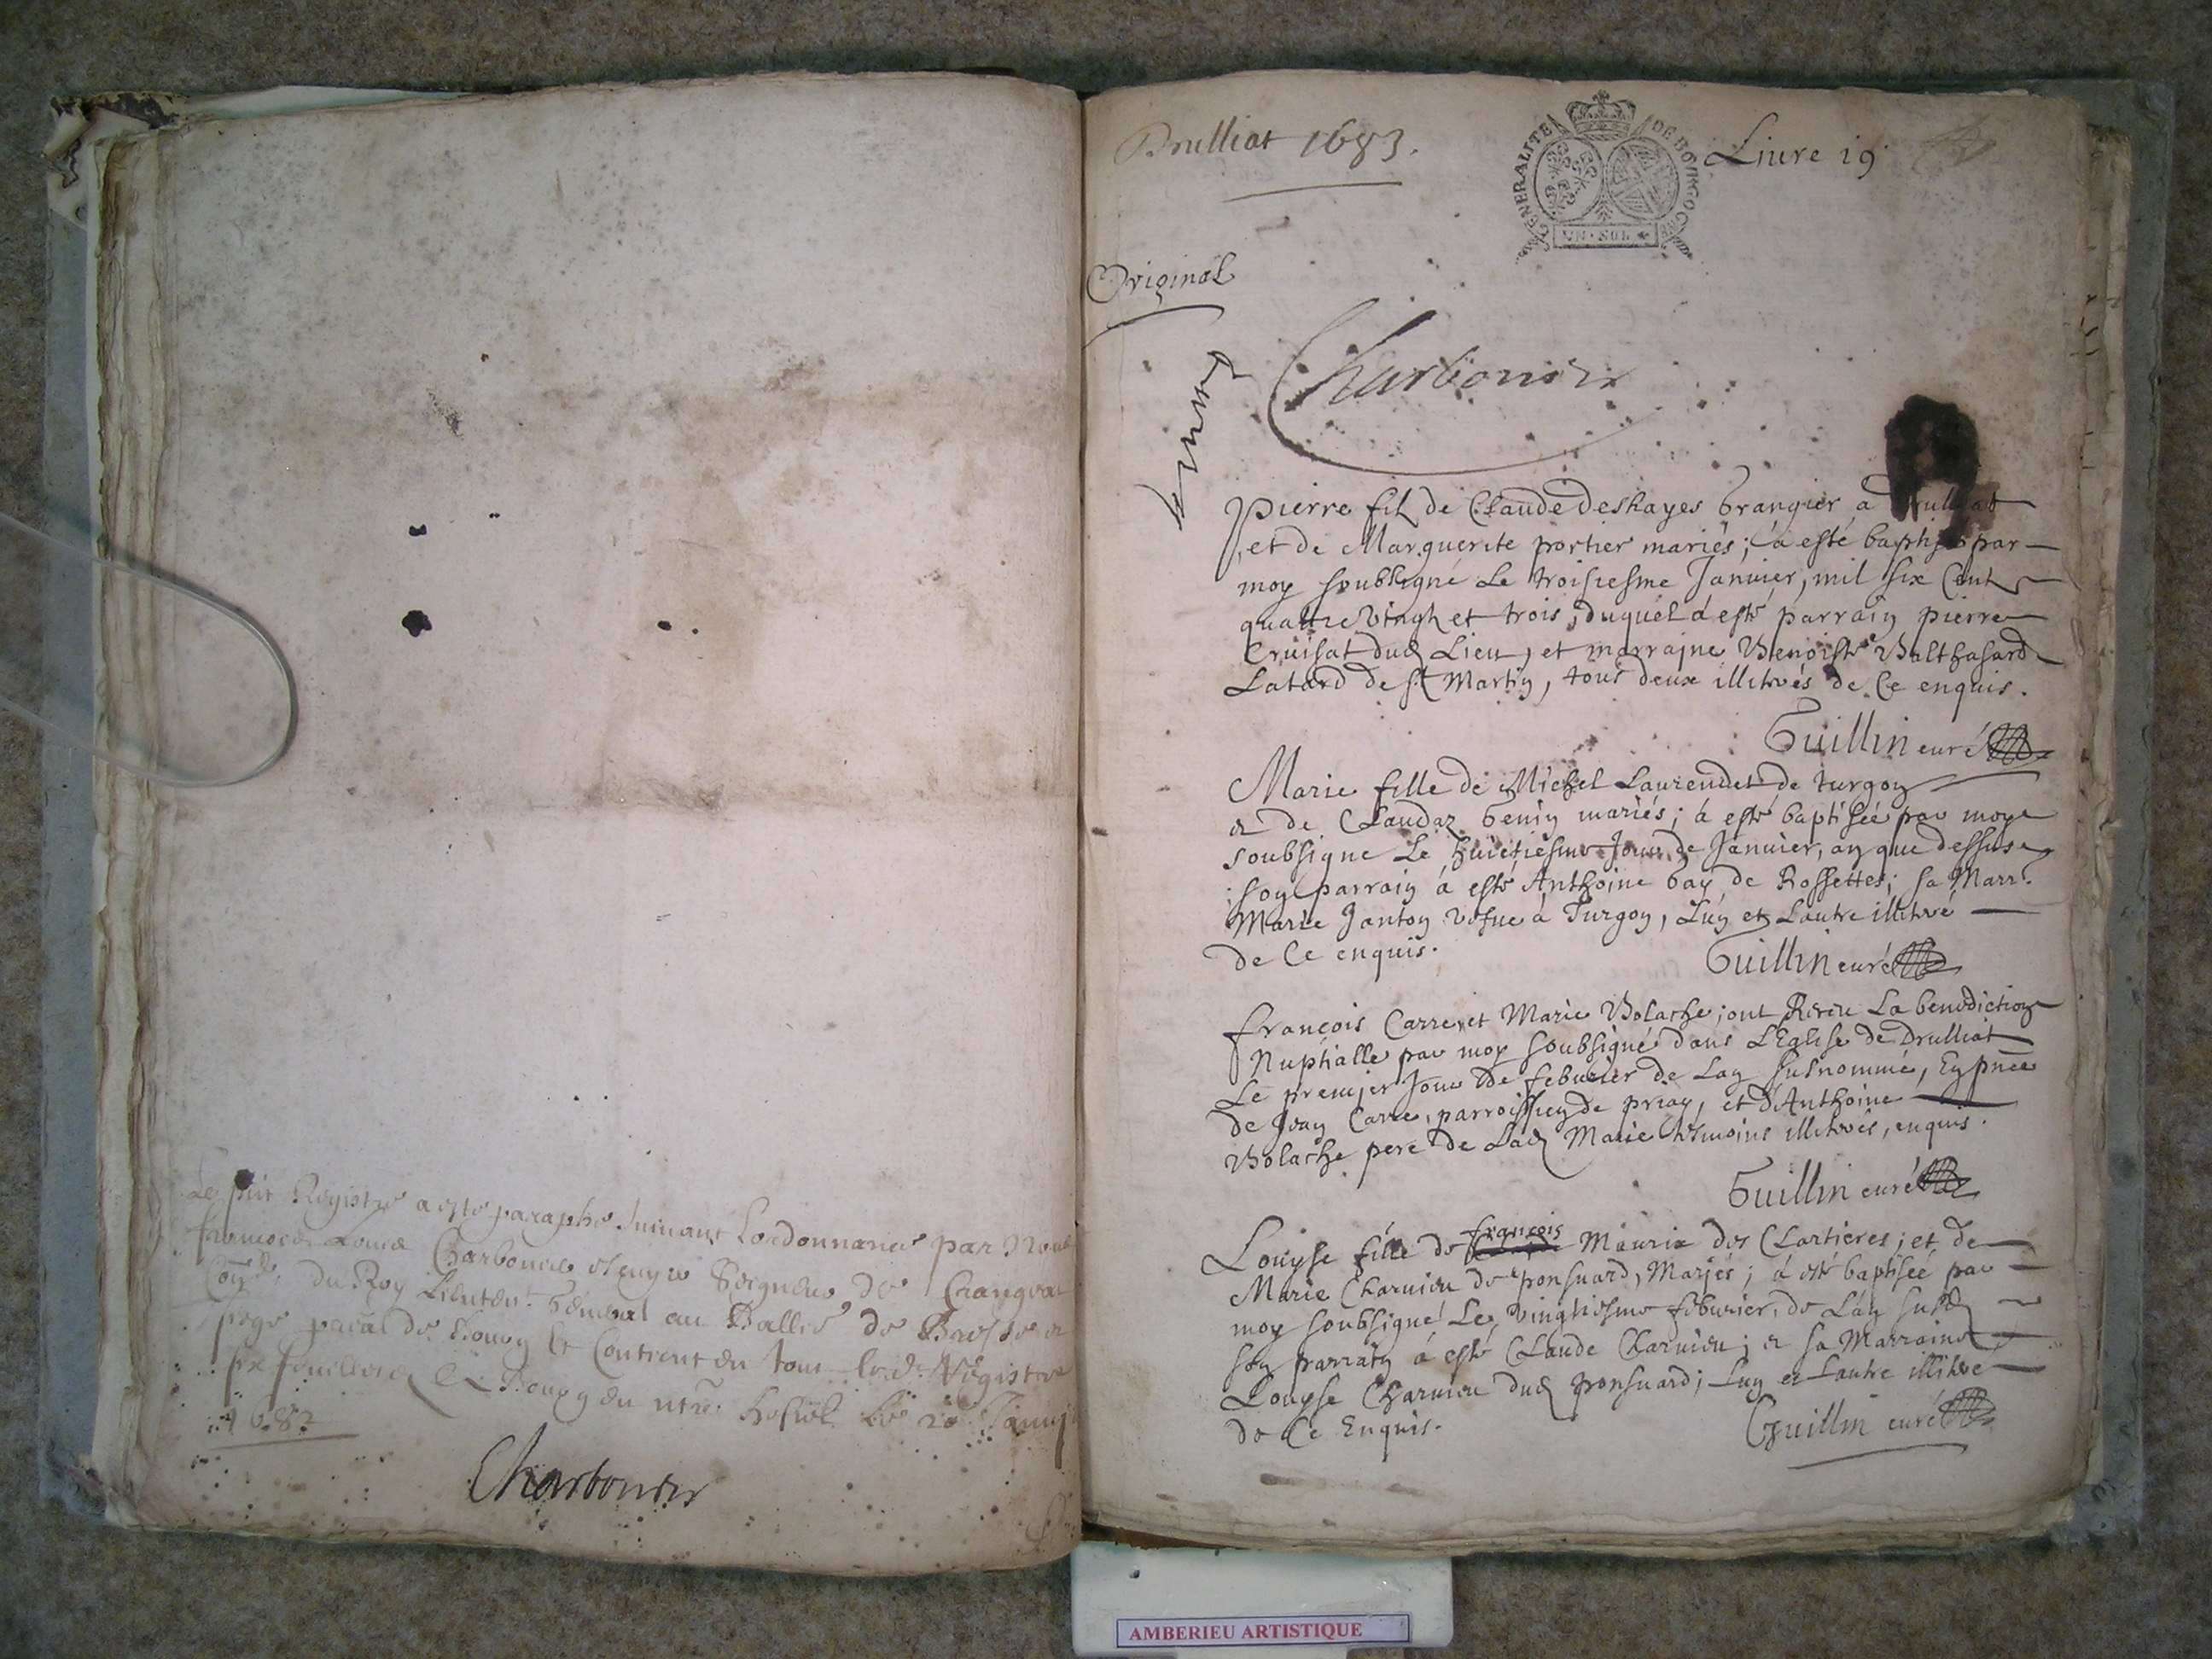 Le pnt Registre a esté paraphé suivant Lordonnance par Nous
Charbonier escuyer Seigneur de Crangeat
du Roy Lieutent. General au Balliage de Bresse et
siege pñal de Bourg Et Contient en tout led. Registre
six feuillets A Bourg en ntre. hostel Le 20 Janvi
1683
Charbonier
Drulliat 1683.
GENERALITE DE BOURGOGNE
UN·SOL
Liure 19
Original
Charbonier
Pierre fils de Claude deshayes Grangier à Drulliat
et de Marguerite portier mariés; à esté baptisé par
moy soubsigné Le troisiesme Januier, mil six Cent
quattre Vingts et trois, duquel à esté parrain pierre
Cruisat dud Lieu, et marraine Benoiste Balthasard
Latard de st Martin, tous deux illitrés de Ce enquis.
Guillin curé
Marie fille de Michel Laurendet de Turgon
& de Claudaz Genin mariés; à esté baptisée par moy
soubsigne Le huictiesme Jour de Januier, an que dessus
; son parrain à esté Anthoine Gay de Rossettes; sa Marr.
Marie Janton vefue à Turgon, Luy et Lautre illitré
de Ce enquis.
Guillin curé
François Carre, et Marie Bolache; ont Receu La benediction
Nuptialle par moy soubsigné dans L'Eglise de Drulliat
Le premier Jour de feburier de Lan susnommé, En pnce
de Jean Carre, parroissien de priay, et d'Anthoine
Bolache pere de Lad Marie tesmoins illitrés, enquis.
Guillin curé
Louyse fille de françois Mauris des Clartieres; et de
Marie Charuieu de ponsuard, Mariés; à esté baptisée par
moy soubsigné Le Vingtiesme feburier, de Lan susd
son parrain à esté Claude Charuieu; & sa Marraine
Louyse Charuieu dud ponsuard; Luy et Lautre illitré
de Ce Enquis.
Guillin curé
AMBERIEU ARTISTIQUE